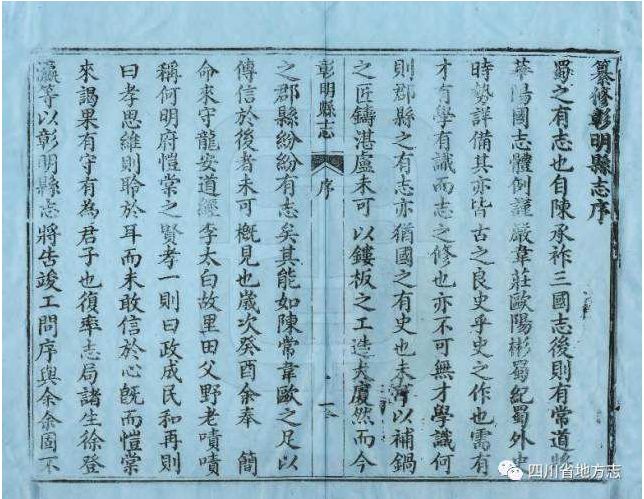 纂修彰明縣志序
蜀之有志也自陳承祚三國志後則有常道將
華陽國志體例謹嚴韋莊歐陽彬蜀紀蜀外史
時勢詳備其亦皆古之良史乎史之作也需有
才有學有識而志之修也亦不可無才學識何
則郡縣之有志亦猶國之有史也未可以補鍋
之匠鑄湛盧未可以鏤板之工造大廈然而今
彰明縣志
序
一
之郡縣紛紛有志矣其能如陳常韋歐之足以
傳信於後者未可槪見也歲次癸酉余奉 簡
命來守龍安道經李太白故里田父野老嘖嘖
稱何明府愷棠之賢考一則曰政成民和再則
曰孝思維則聆於耳而未敢信於心旣而愷棠
來謁果有守有為君子也復率志局諸生徐登
瀛等以彰明縣志將告竣工問序與余余固不
四川省地方志